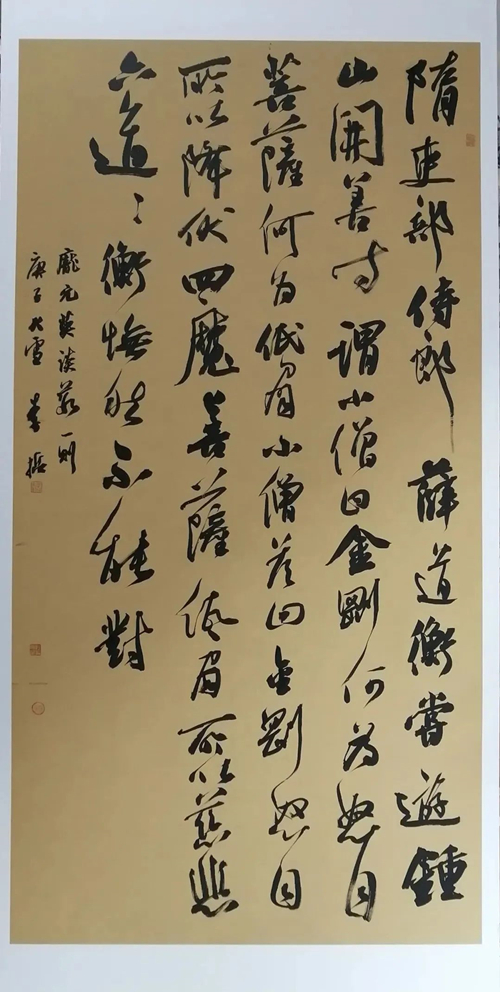 隋吏部侍郎薛道衡嘗遊鍾
山開善寺謂小僧曰金剛何為怒目
菩薩何為低眉小僧答曰金剛怒目
所以降伏四魔菩薩低眉所以慈悲
六道〻衡憮然不能對
龐元英談藪一則
庚子大雪